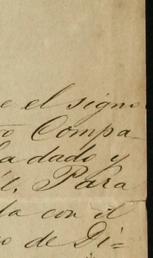 e el signo
o Compa-
la dado y
l, Para
la con el
o de Di=